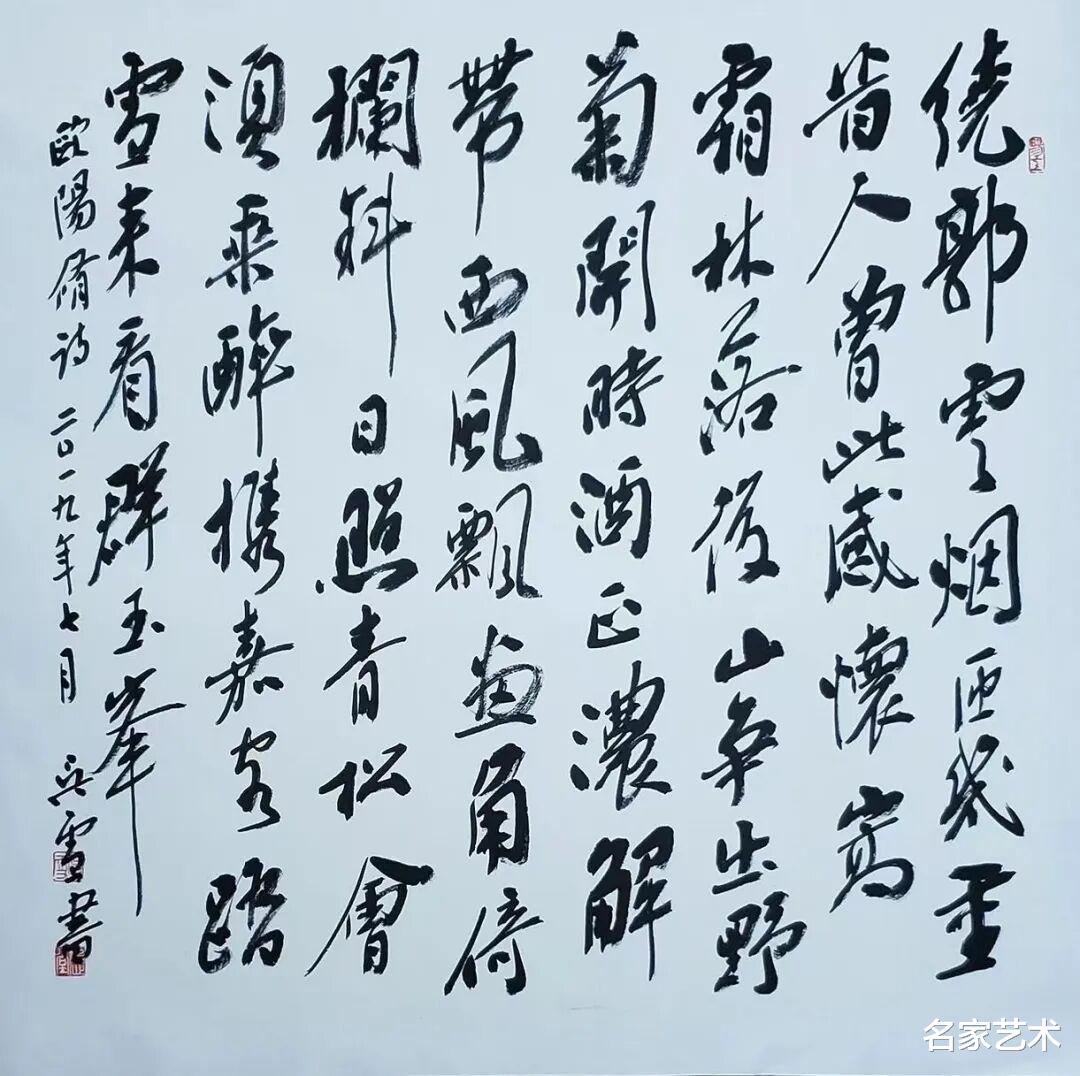 繞郭雲烟匝幾重
昔人曾此感懷嵩
霜林落後山爭出野
菊開時酒正濃解
帶西風飄畫角倚
欄斜日照青松會
須乘醉攜嘉客踏
雪來看群玉峯
歐陽脩詩 二〇一九年七月 吳雪書
名家艺术